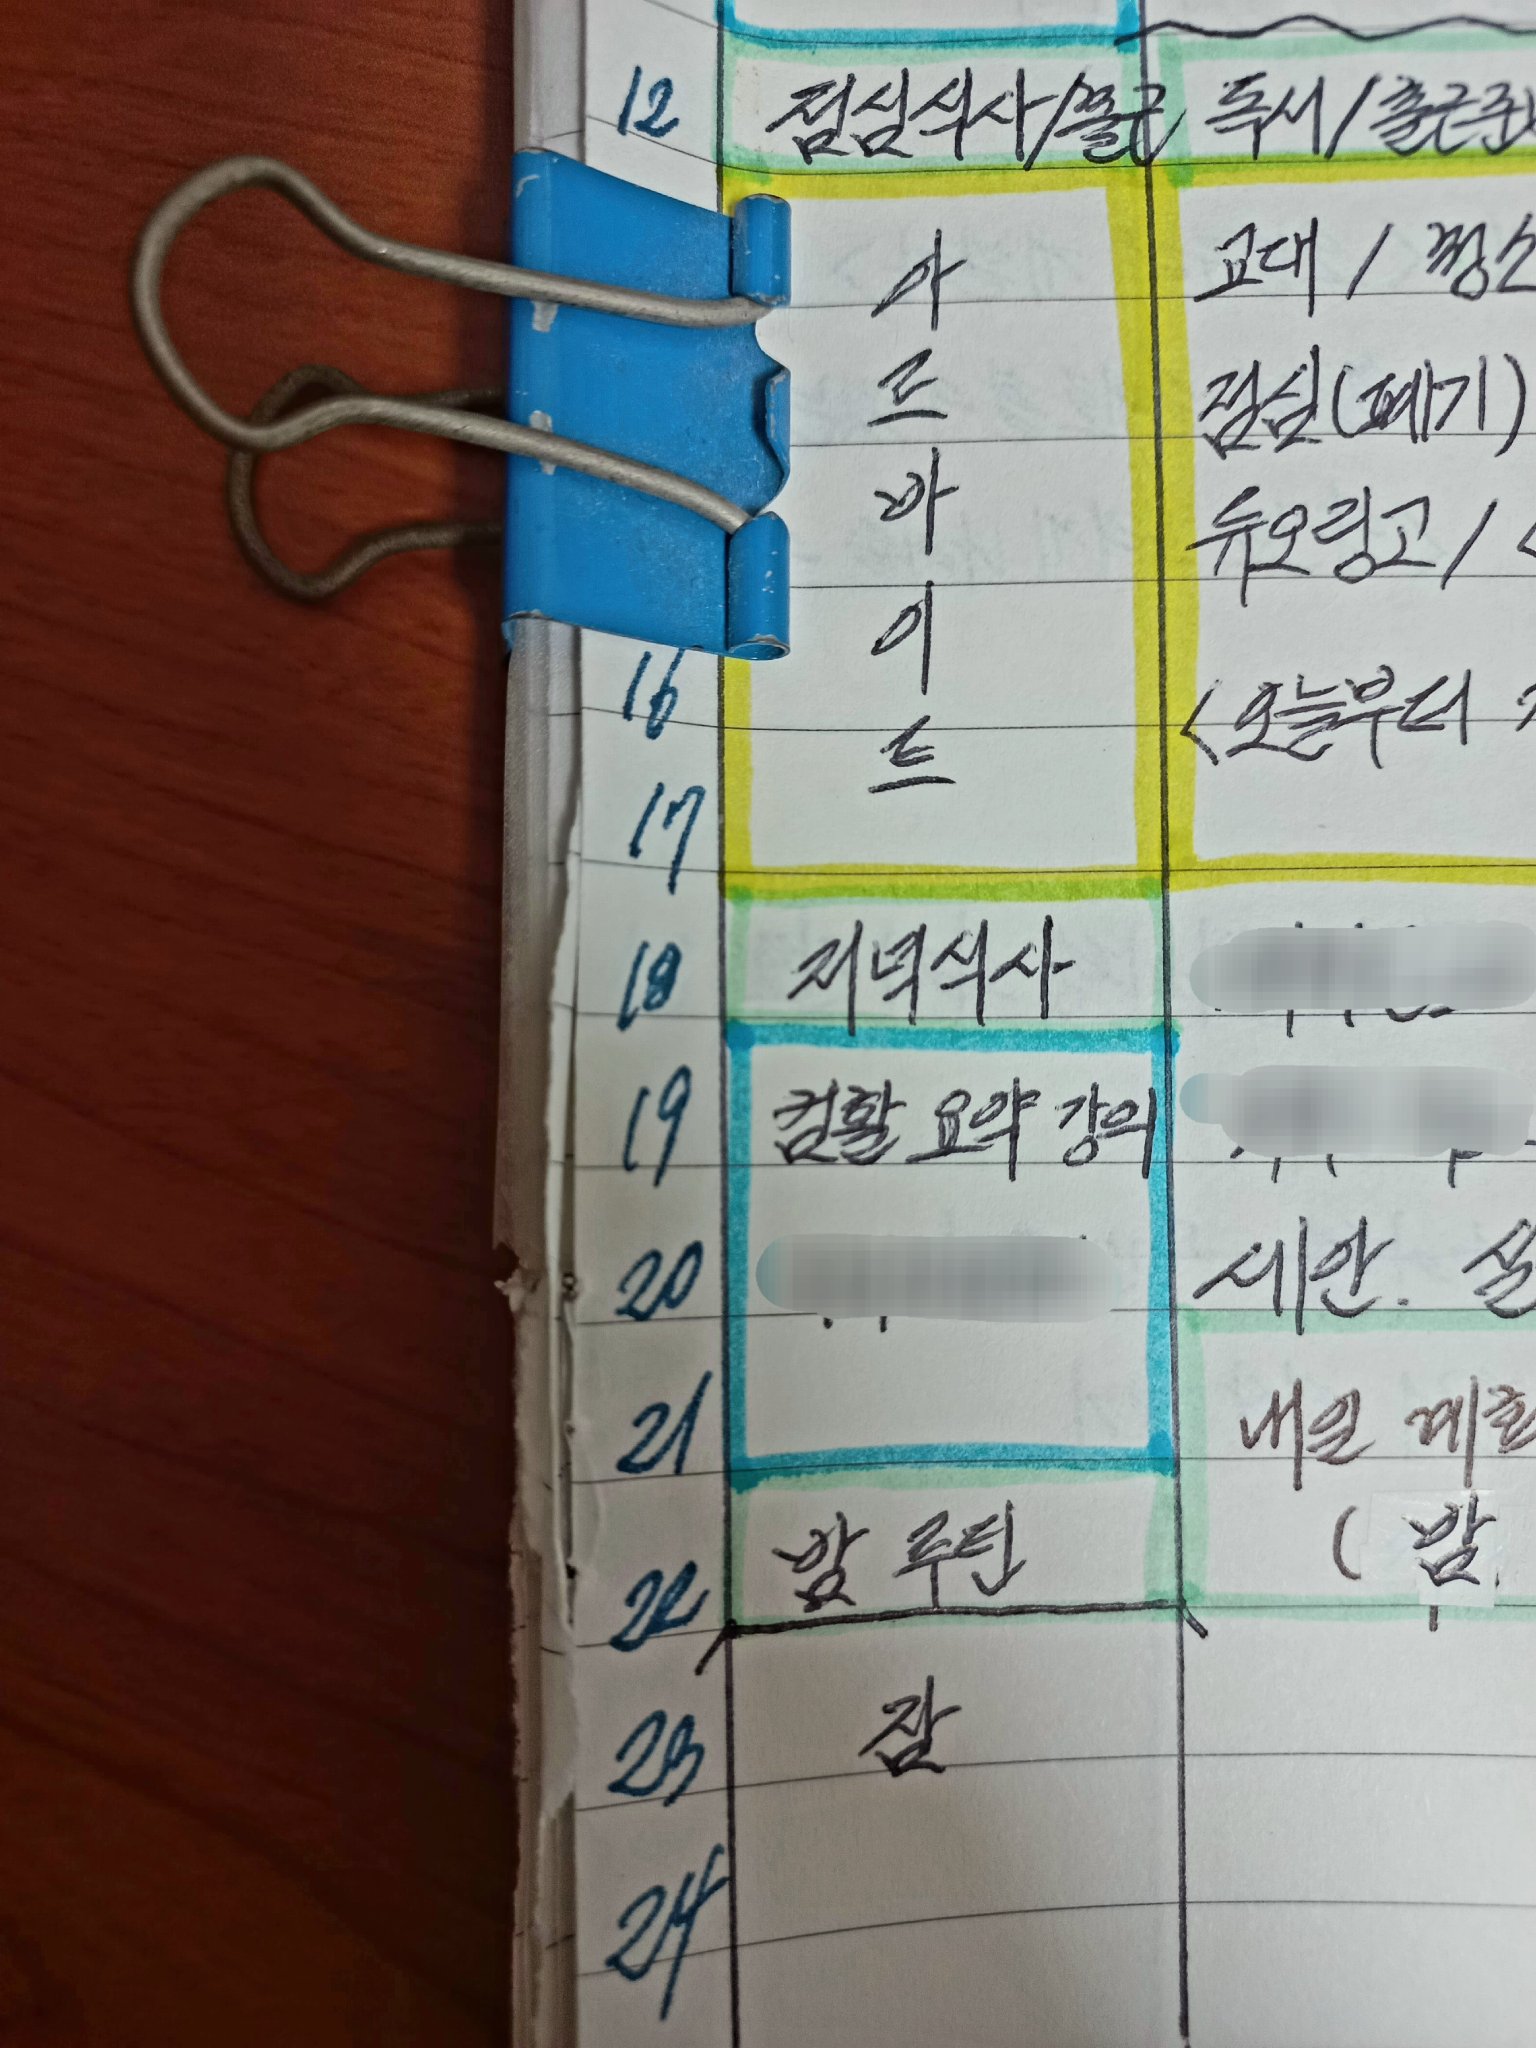 12 점심식사/출근 독서/출근준
아 교대 / 청소
르 점심(폐기)
바 듀오링고/
이
16 <오늘부터
트
17
18 저녁식사
19 컴활 요약 강의
20 세안.
21 내일 계획
22 밤 루틴 ( 밤.
23 잠
24